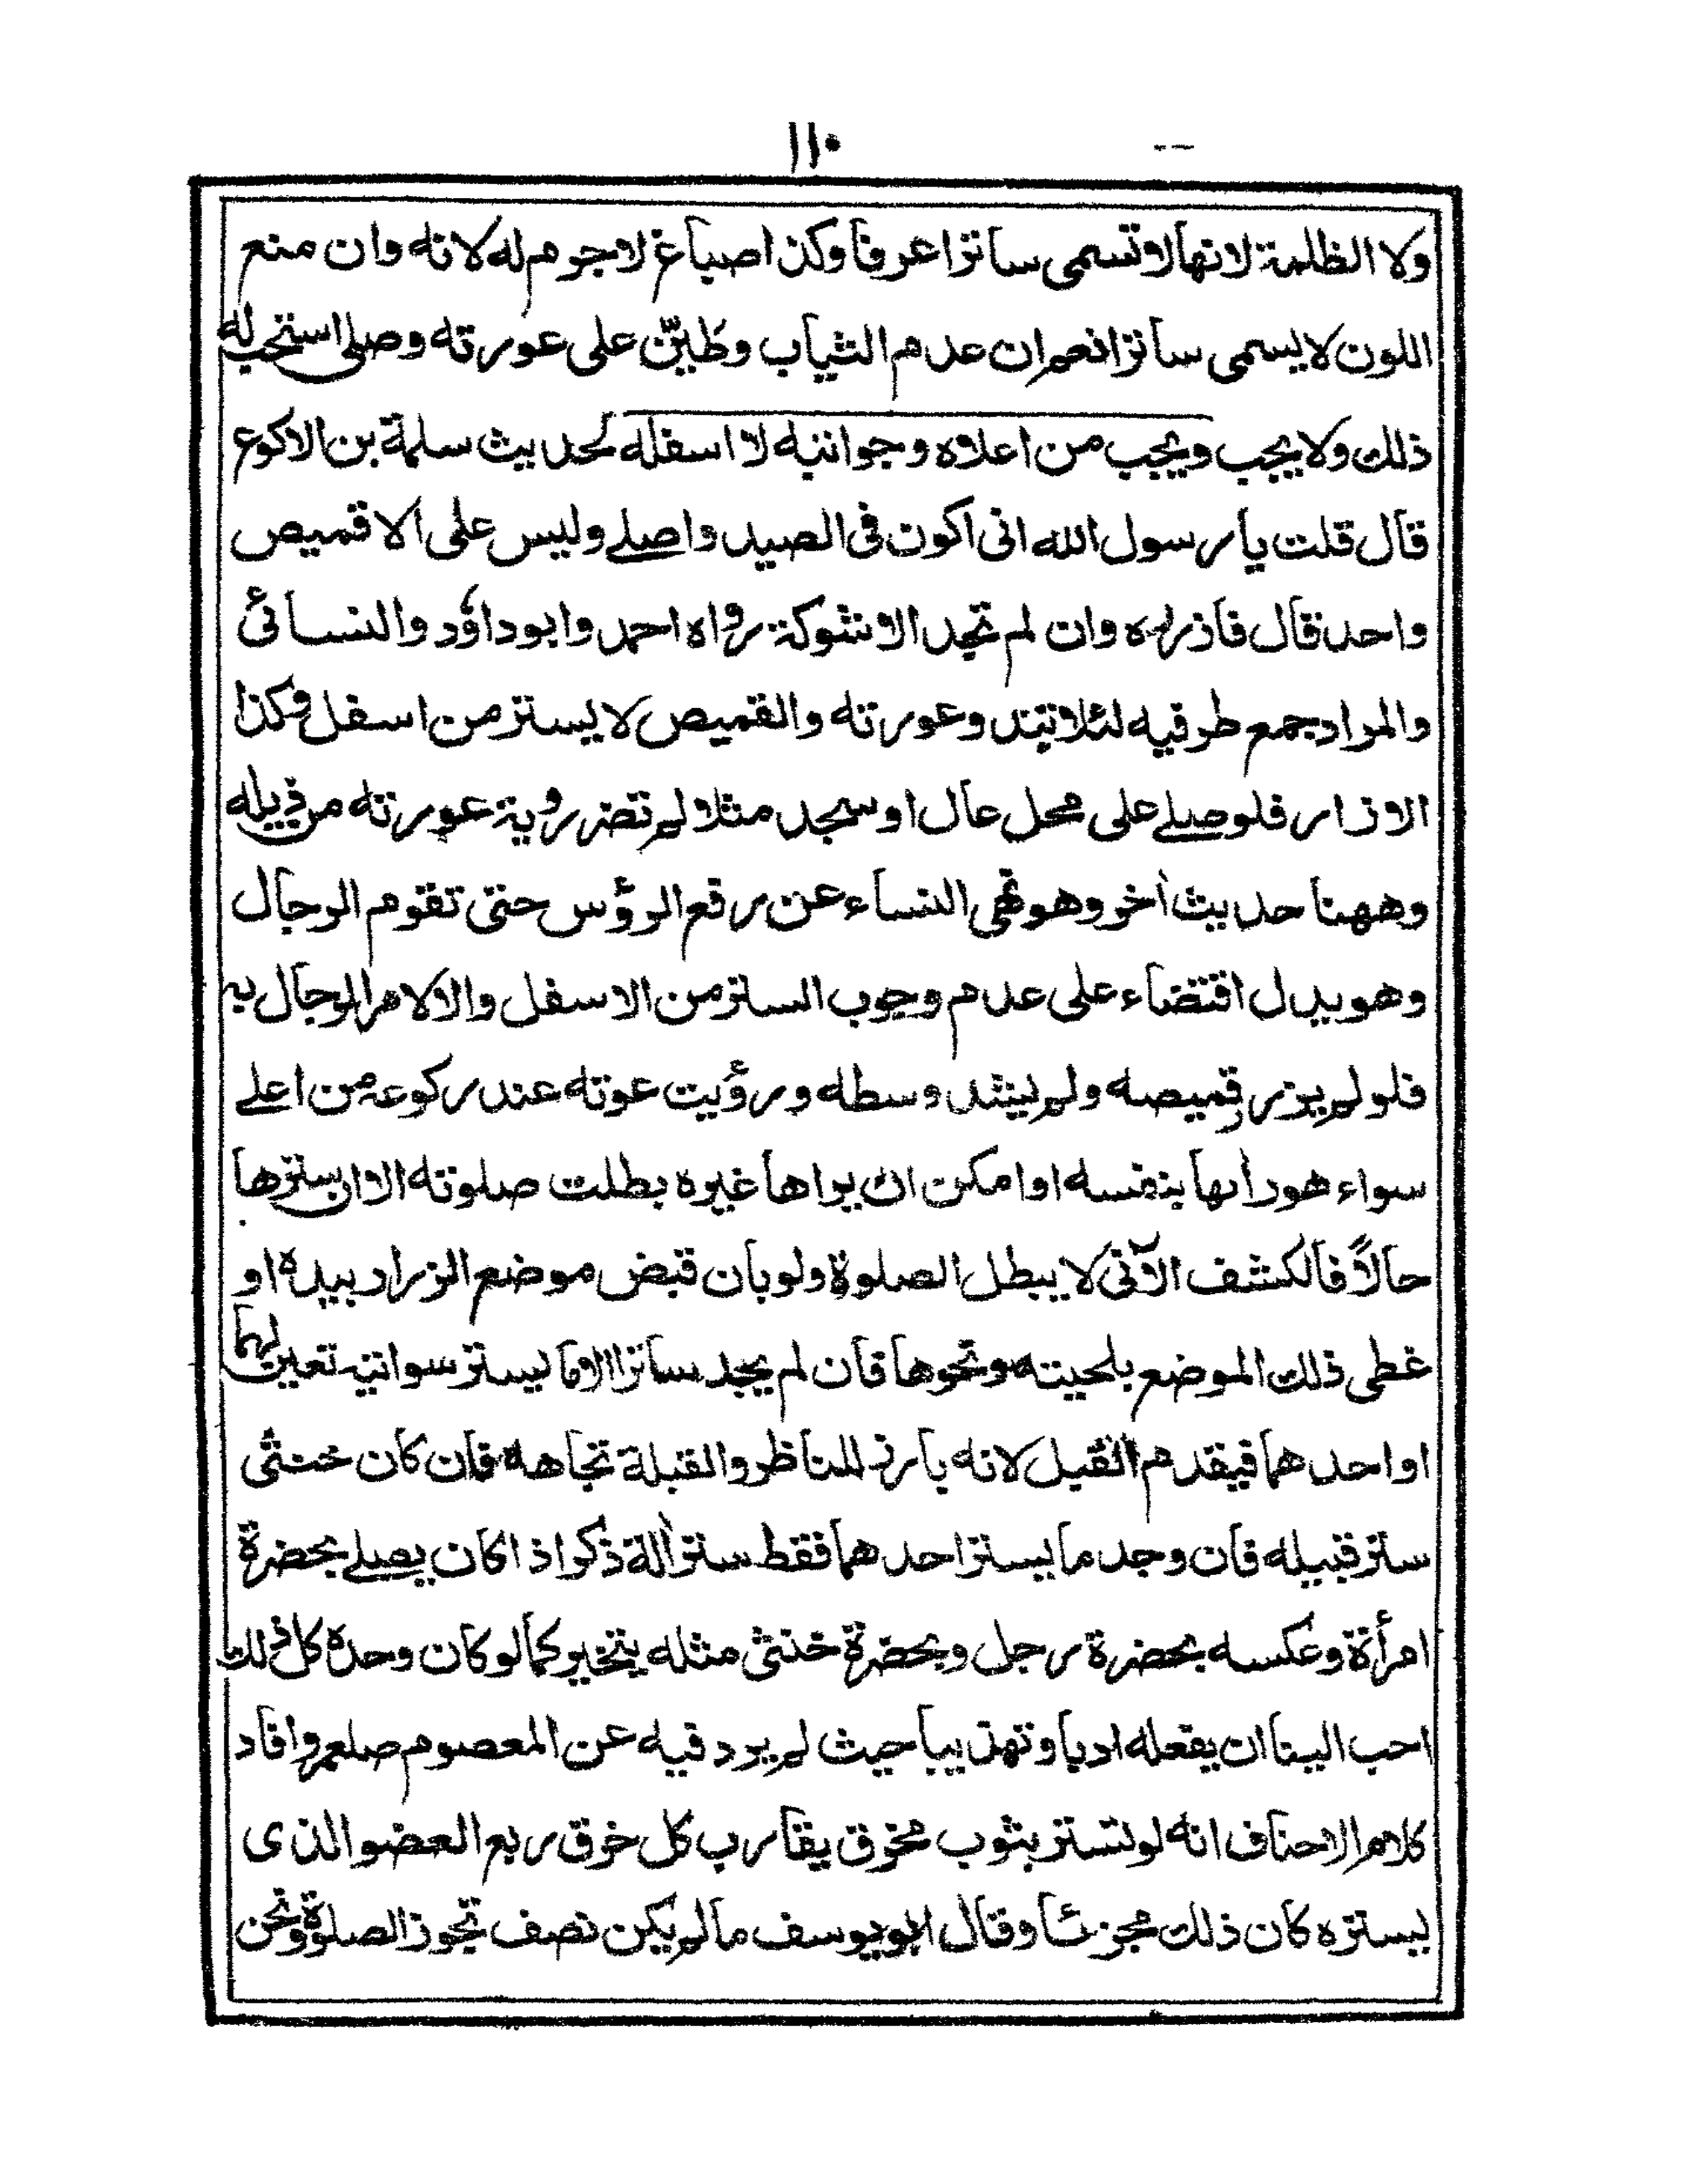 ١١٠
ولا الظلمة لانها لا تسمى ساترا عرفا وكذا صباغ لا جرم له لانه وان منع
اللون لا يسمى ساترا نعم ان عدم الثياب وطين على عورته وصلى استحب له
ذلك ولا يجب ويجب من اعلاه وجوانبه لا اسفله لحديث سلمة بن الاكوع
قال قلت يا رسول الله انى اكون فى الصيد واصلے وليس على الا قميص
واحد قال فازرره وان لم تجد الا شوكة رواه احمد وابو داؤد والنسائى
والمراد جمع طرفيه لئلا تبد وعورته والقميص لا يستر من اسفل وكذا
الازار فلو صلے على محل عال او سجد مثلا لم تضر روية عورته من ذيله
وههنا حديث اٰخر وهو نهى النساء عن رفع الرؤس حتى تقوم الرجال
وهو يدل اقتضاء على عدم وجوب الستر من الاسفل والا لامر الرجال به
فلو لم يزر قميصه ولم يشد وسطه ورؤيت عوته عند ركوعه من اعلے
سواء هو راٰها بنفسه او امكن ان يراها غيره بطلت صلوته الا ان سترها
حالاً فالكشف الآتى لا يبطل الصلوة ولو بان قبض موضع الزرار بيده او
غطى ذلك الموضع بلحيته ونحوها فان لم يجد ساترا الا ما يستر سوانيه تعين لهما
او احدهما فيقدم القبل لانه بارز للناظر والقبلة تجاهه فان كان خنثى
ستر قبيله فان وجد ما يستر احدهما فقط ستر اٰلة ذكر اذا كان يصلے بحضرة
امرأة وعكسه بحضرة رجل وبحضرة خنثى مثله يتخير كما لو كان وحده كل ذلك ما
احب الينا ان يفعله ادبا وتهذيبا حيث لم يرد فيه عن المعصوم صلعم وافاد
كلام الاحناف انه لو تستر بثوب مخرق يقارب كل خرق ربع العضو الذى
يستره كان ذلك مجزئا وقال ابو يوسف ما لم يكن نصف تجوز الصلوة ونحن